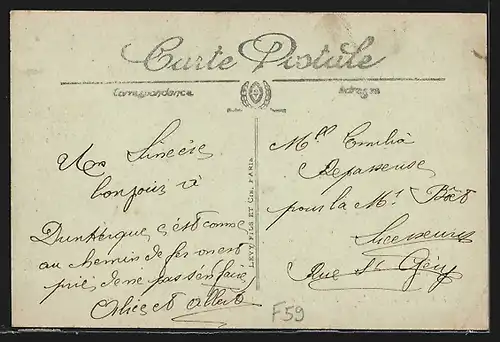 Carte Postale
Correspondance
Adresse
Un Sincère
bonjour à
Dunkerque c'est comme
au chemin de fer on est
prié de ne pas s'en faire
et Albert
LEVY FILS ET Cie, PARIS
Mlle Emilia
Repasseuse
pour la Mon
Rue St Géry
F59